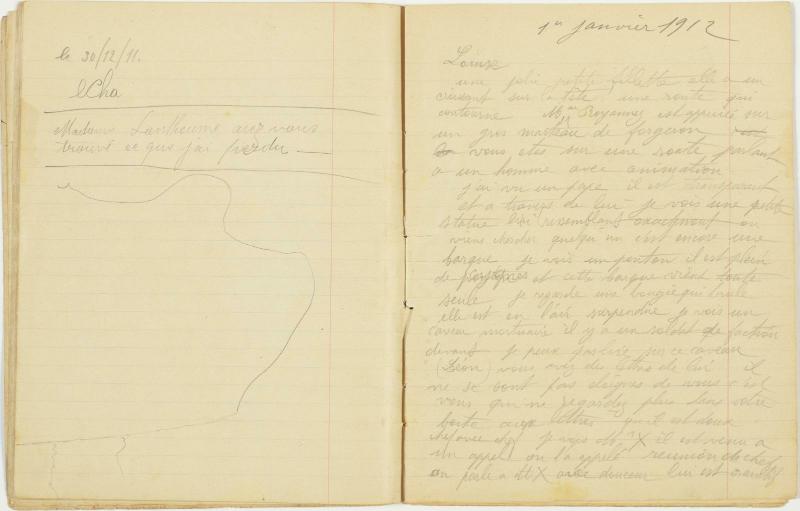 le 30/12/11.
Madame Lantheaume avez vous
trouvé ce que j'ai perdu
1er janvier 1912
Louise
une jolie petite fillette elle a un
croissant sur la tête, une route qui
contourne Mme Royannez est appuyée sur
un gros marteau de forgeron
vous etes sur une route parlant
a un homme avec animation
j'ai vu un pape il est transparent
et a travers de lui je vois une petite
statue lui ressemblant exactement on
viens chercher quelqu'un c'est encore une
barque je vois un ponton il est plein
de personnes et cette barque vient toute
seule je regarde une bougie qui brule
elle est en l'air suspendue je vois un
caveau mortuaire il y a un soldat de faction
devant je peux pas lire sur ce caveau
(Léon) vous avez des lettres de lui il
ne se sont pas éloignés de vous c'est
vous qui ne regardez plus dans votre
boite aux lettres qu'il est doux
chez je vois Mr X il est venu a
un appel on l'a appelé reunion de chefs
on parle a Mr X avec douceur lui est